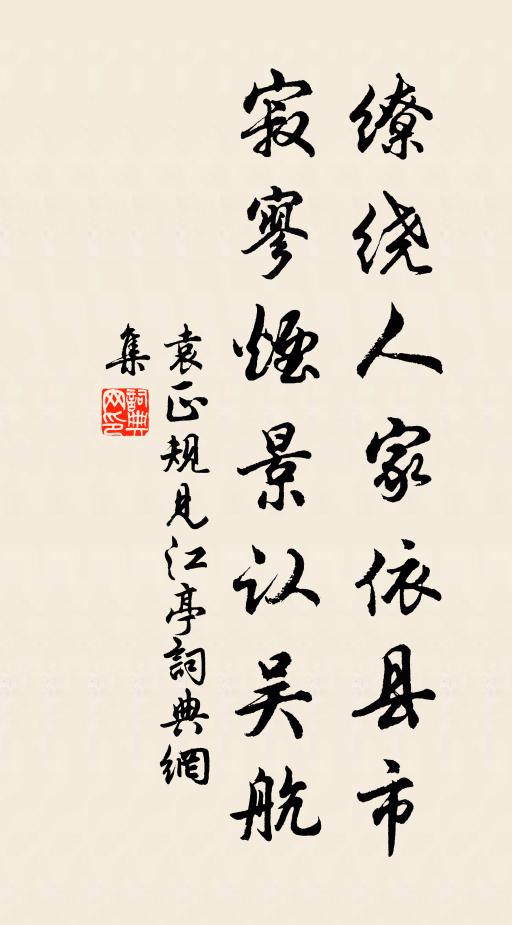 缭绕人家依县市
寂寥烟景认吴航
袁正规见江亭词典网
集
词典网印